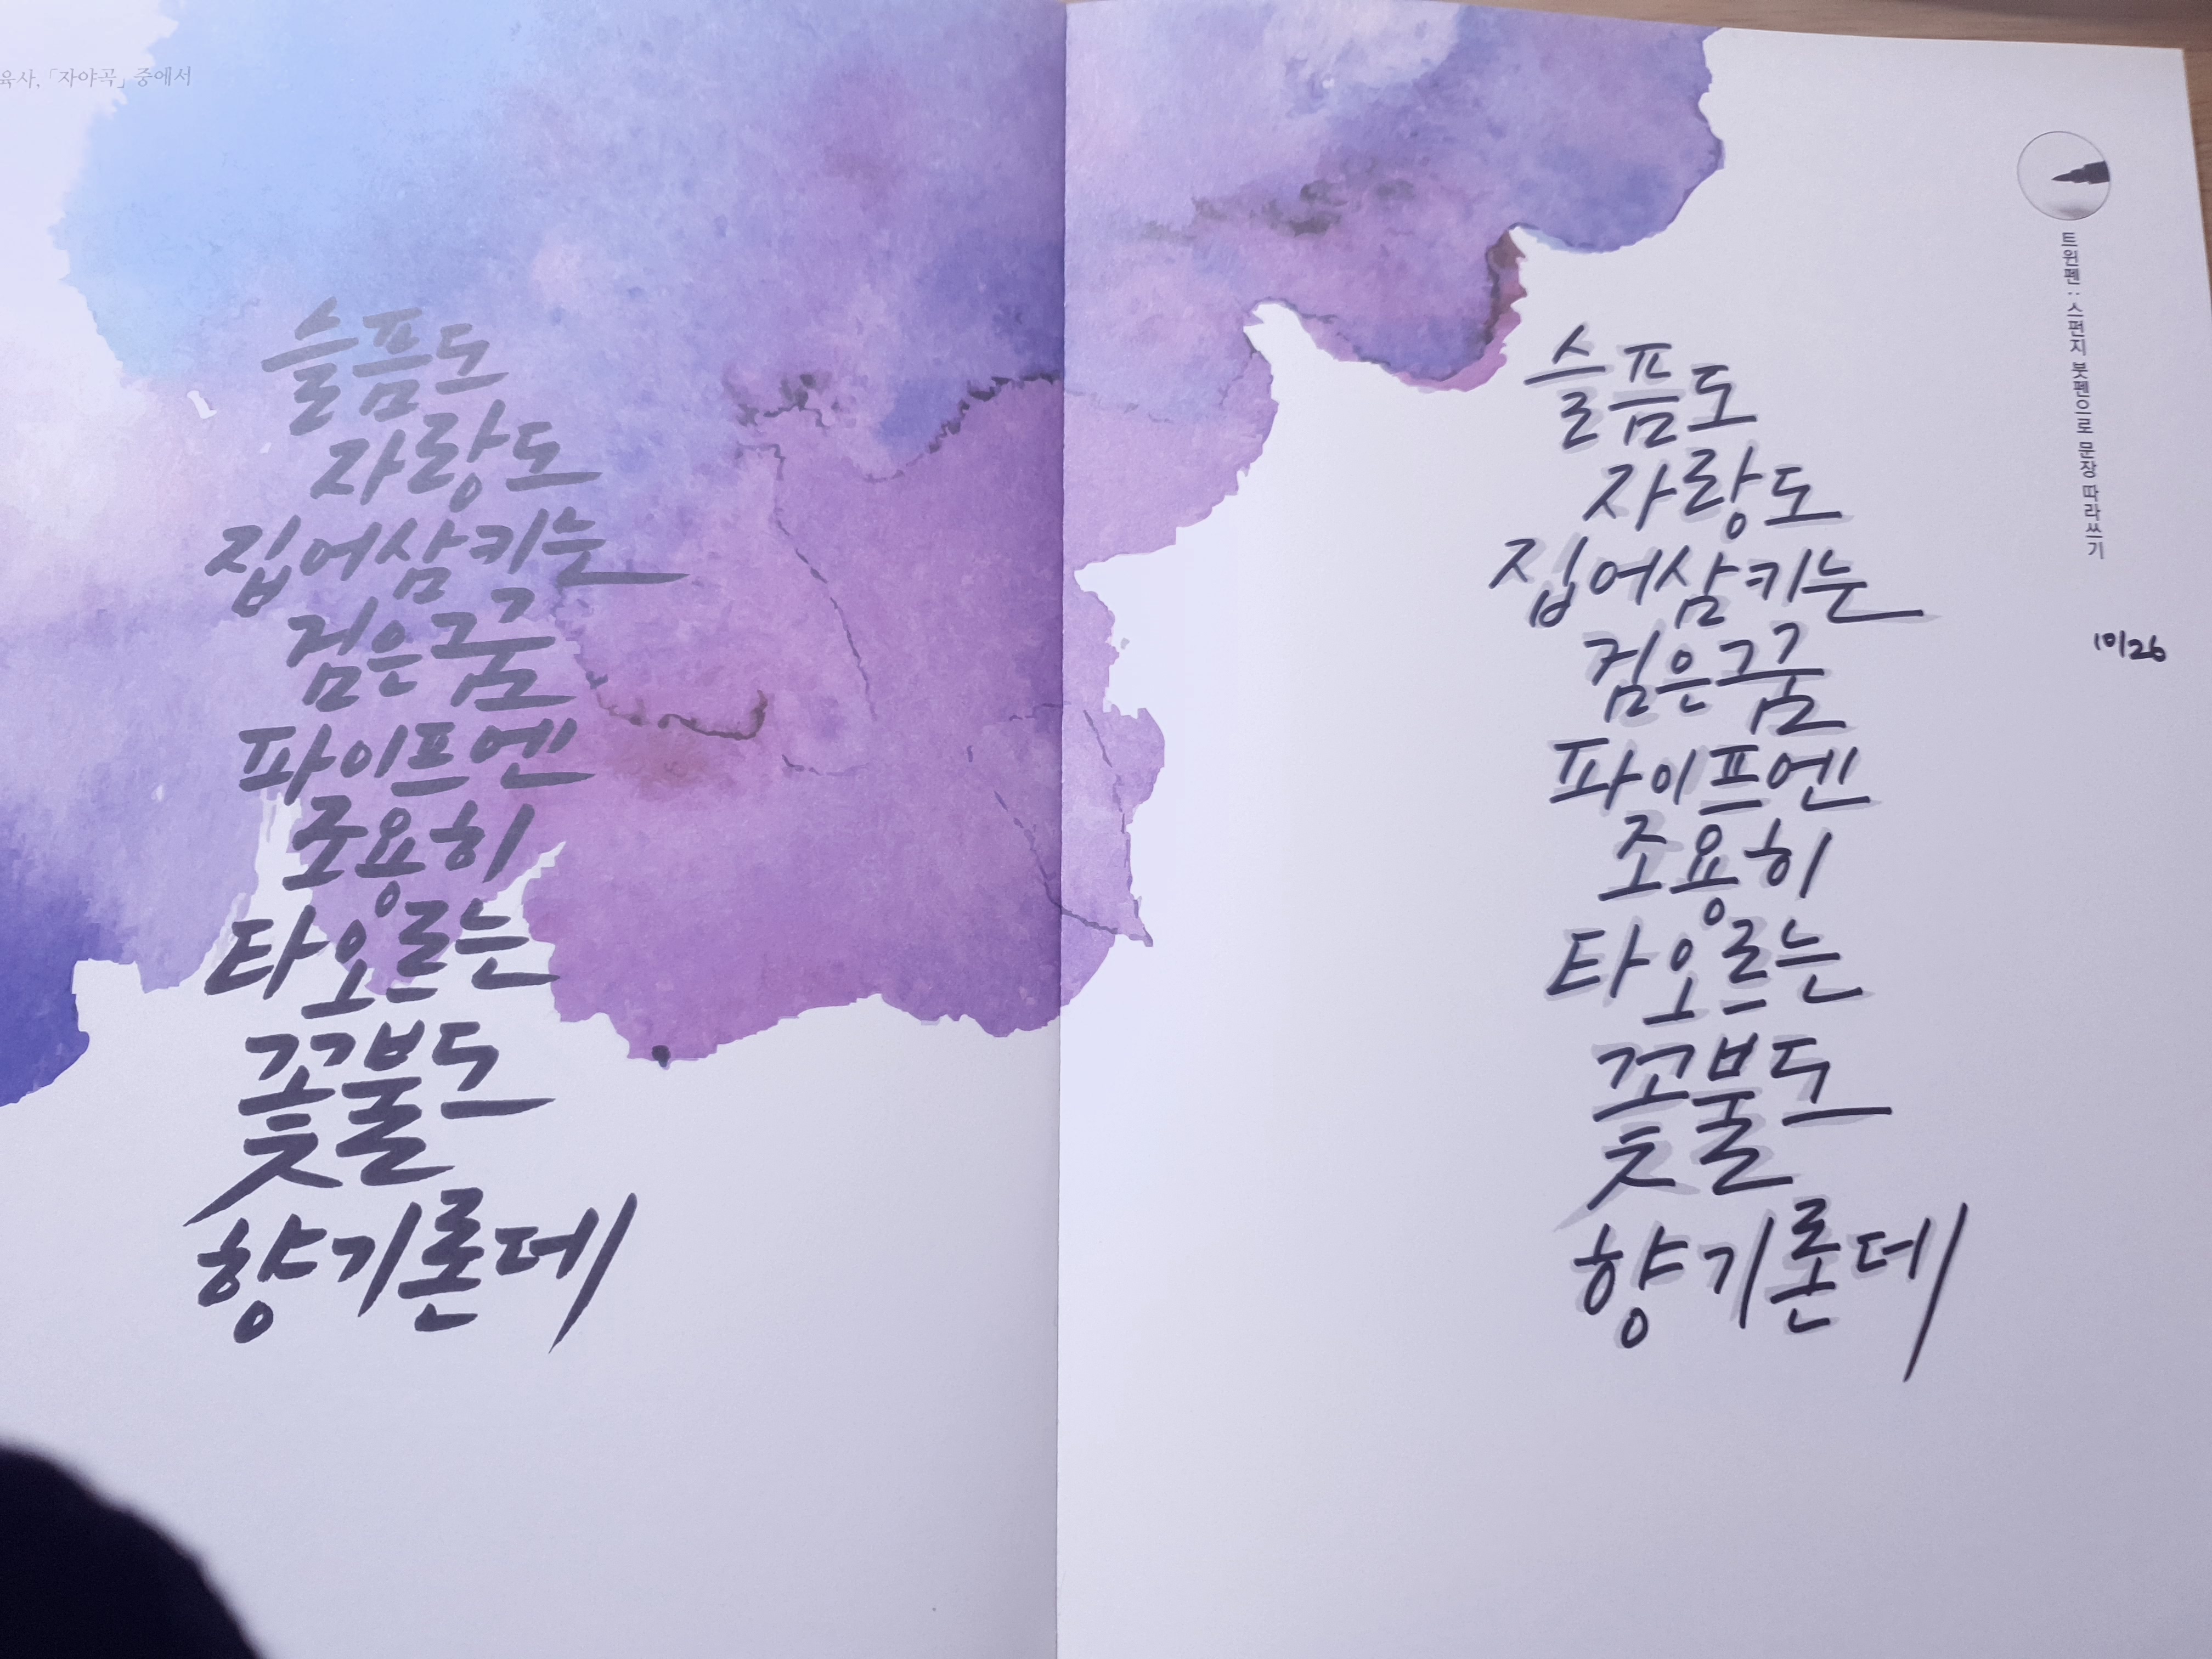 육사, 「자야곡」 중에서
슬픔도
자랑도
집어삼키는
검은 꿈
파이프엔
조용히
타오르는
꽃불도
향기론데
슬픔도
자랑도
집어삼키는
검은 꿈
파이프엔
조용히
타오르는
꽃불도
향기론데
트윈펜 : 스펀지 붓펜으로 문장 따라쓰기
10/26